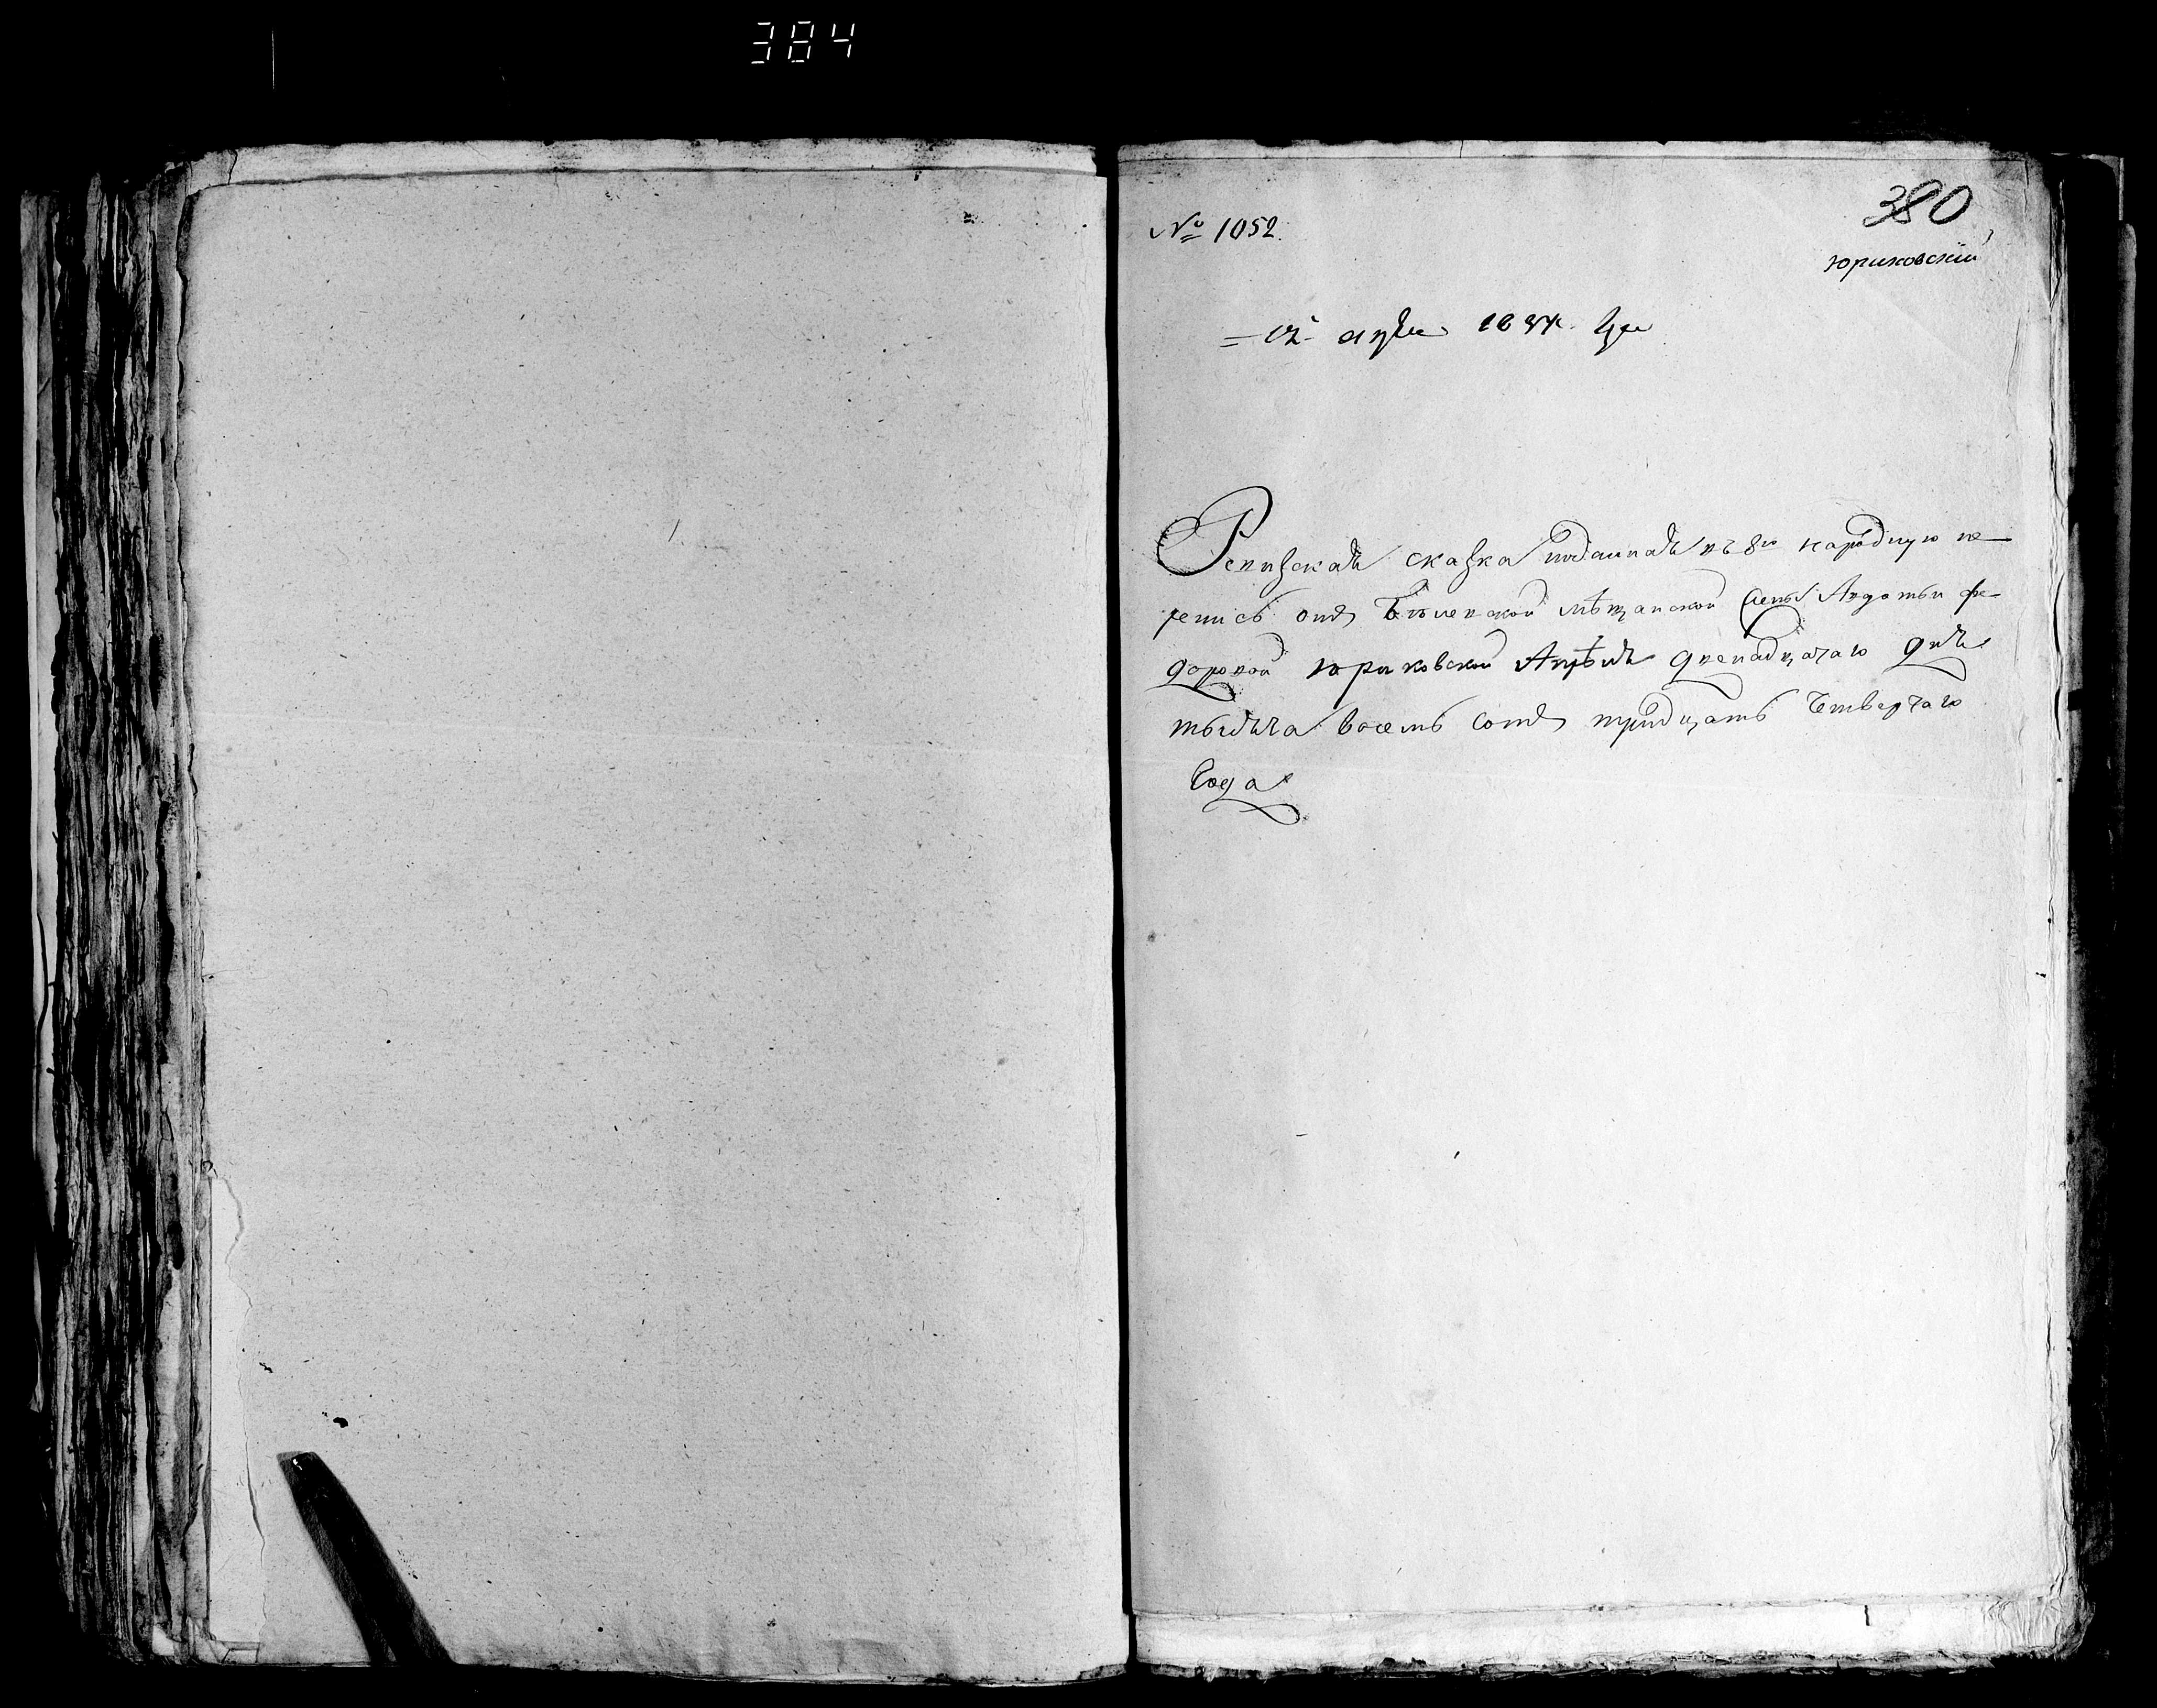 384
380
№ 1052.
Юриковскій
12 апрѣля 1834 года
Ревизская сказка поданная въ 8ю народную пе-
репись отъ Бѣлевской мѣщанской жены Авдотьи фе-
доровой Юриковской Апрѣля двенадцатаго дня
тысяча восемь сотъ тридцать Четвертаго
Года